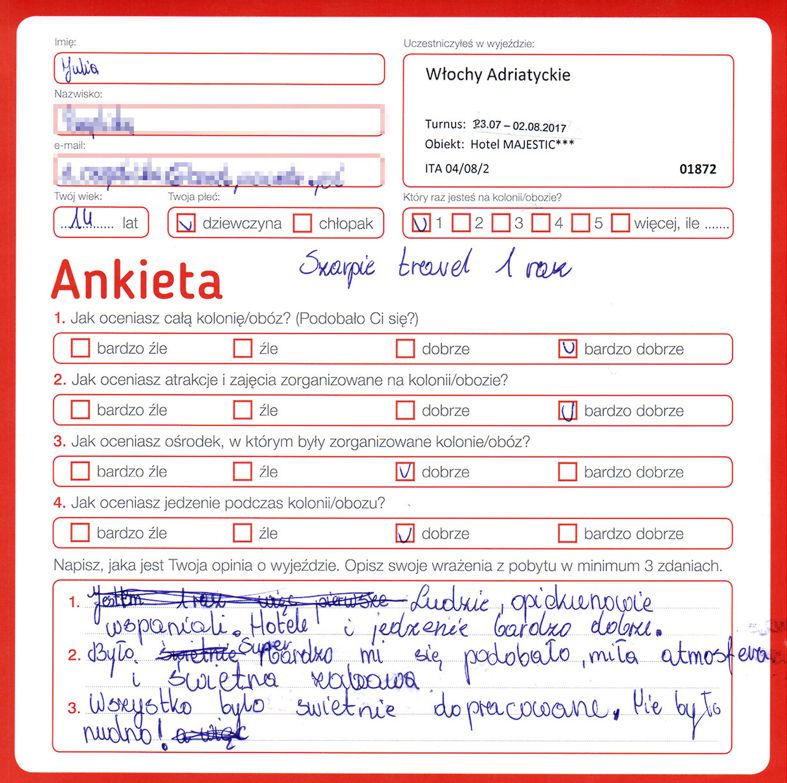 Imię:
Julia
Uczestniczyłeś w wyjeździe:
Włochy Adriatyckie
Turnus: 23.07 – 02.08.2017
Obiekt: Hotel MAJESTIC***
ITA 04/08/2 01872
Nazwisko:
e-mail:
Twój wiek:
14 lat
Twoja płeć:
dziewczyna chłopak
Który raz jesteś na kolonii/obozie?
1 2 3 4 5 więcej, ile .......
Szarpie travel 1 raz
Ankieta
1. Jak oceniasz całą kolonię/obóz? (Podobało Ci się?)
bardzo źle źle dobrze bardzo dobrze
2. Jak oceniasz atrakcje i zajęcia zorganizowane na kolonii/obozie?
bardzo źle źle dobrze bardzo dobrze
3. Jak oceniasz ośrodek, w którym były zorganizowane kolonie/obóz?
bardzo źle źle dobrze bardzo dobrze
4. Jak oceniasz jedzenie podczas kolonii/obozu?
bardzo źle źle dobrze bardzo dobrze
Napisz, jaka jest Twoja opinia o wyjeździe. Opisz swoje wrażenia z pobytu w minimum 3 zdaniach.
1. Jestem 1 raz więc pierwsze Ludzie, opiekunowie
wspaniali. Hotele i jedzenie bardzo dobre.
2. Było świetnie Super bardzo mi się podobało, miła atmosfera
i świetna zabawa
3. Wszystko było swietnie dopracowane. Nie było
nudno! a więc